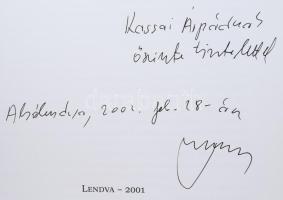 Kassai Árpádnak
őszinte tisztelettel
Alsólendva, 2002. feb. 28-án
LENDVA – 2001